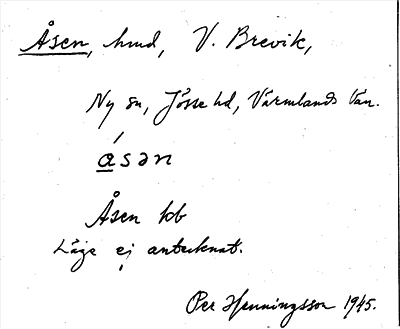 Åsen, hmd, V. Brevik,
Ny sn, Jösse hd, Värmlands län.
á̲sən
Åsen kb
Läge ej antecknat.
Per Henningsson 1945.